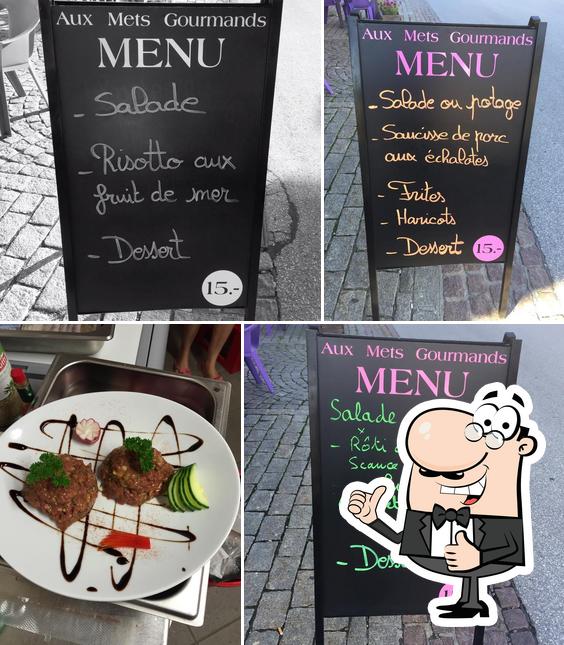 Aux Mets Gourmands
MENU
- Salade
- Risotto aux
fruit de mer
- Dessert
15.-
Aux Mets Gourmands
MENU
- Salade ou potage
- Saucisse de porc
aux échalotes
- Frites
- Haricots
- Dessert
15.-
Aux Mets Gourmands
MENU
Salade
- Rôti